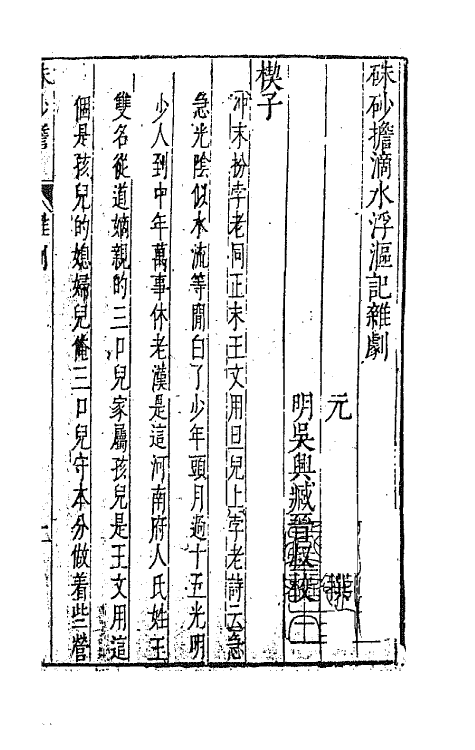 硃砂擔滴水浮漚記雜劇
元
撰
明吳興臧晉叔校
楔子
冲末扮孛老同正末王文用旦兒上孛老詩云急
急光陰似水流等閒白了少年頭月過十五光明
少人到中年萬事休老漢是這河南府人氏姓王
雙名從道嫡親的三口兒家屬孩兒是王文用這
個是孩兒的媳婦兒俺三口兒守本分做着些營
硃砂擔
雜劇
一